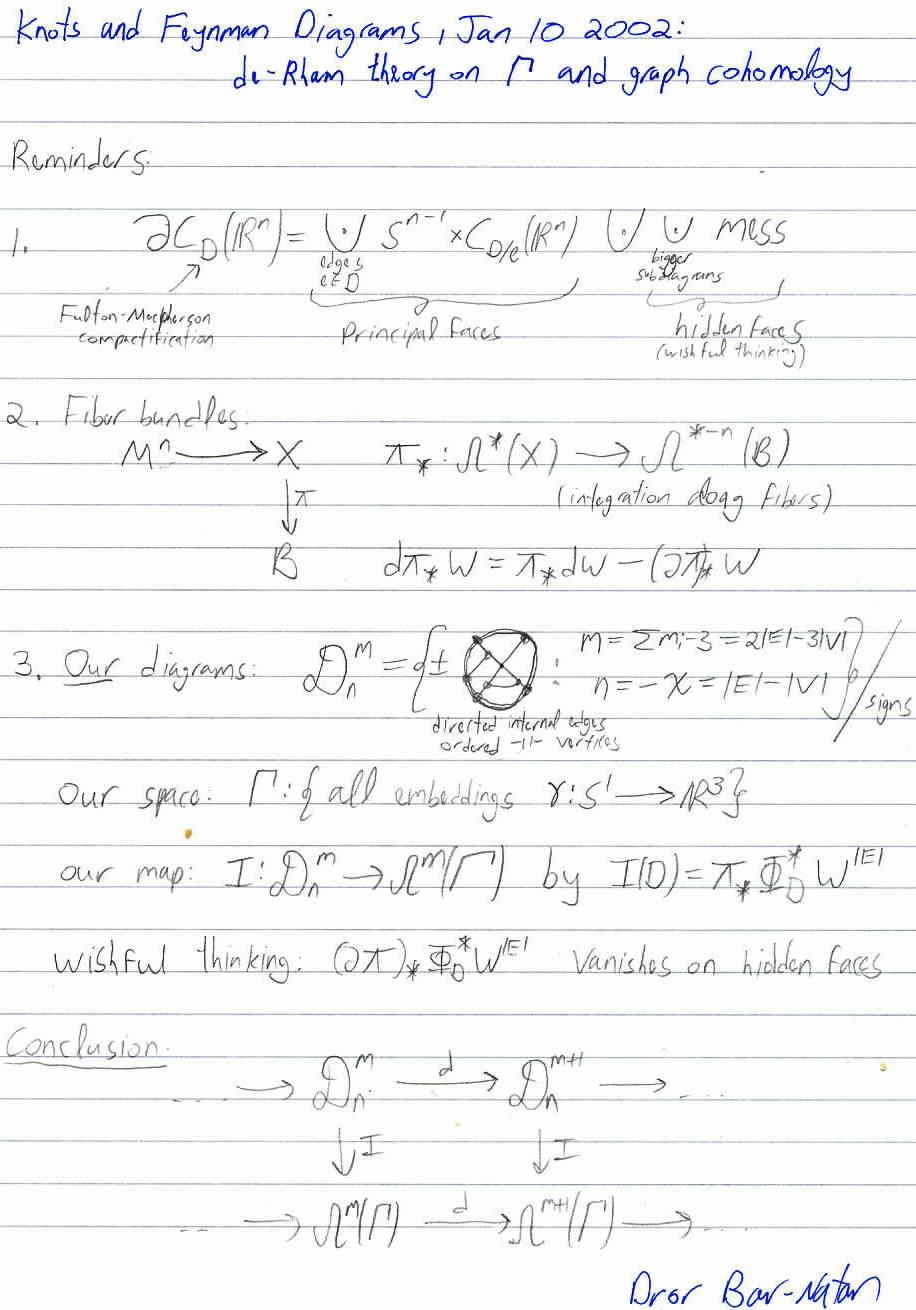 Knots and Feynman Diagrams, Jan 10 2002:
de-Rham theory on Γ and graph cohomology
Reminders.
1. ∂C_D(ℝⁿ) = ⨃ S^{n-1} × C_{D/e}(ℝⁿ) ∪ ⨃ mess
edges e∈D
bigger subdiagrams
Fulton-Macpherson compactification
principal faces
hidden faces
(wishful thinking)
2. Fiber bundles.
Mⁿ → X π_* : Ω^*(X) → Ω^{*-n}(B)
↓π (integration along fibers)
B dπ_*ω = π_*dω − (∂π)_*ω
3. Our diagrams: 𝒟_n^m = { ± : m = Σm_i-3 = 2|E|-3|V|
n = -χ = |E|-|V| } / signs
directed internal edges
ordered -11- vertices
our space: Γ: { all embeddings γ: S¹ → ℝ³ }
our map: I: 𝒟_n^m → Ω^m(Γ) by I(D) = π_* Φ_D^* ω^{|E|}
wishful thinking: (∂π)_* Φ_D^* ω^{|E|} vanishes on hidden faces
Conclusion.
... → 𝒟_n^m →d 𝒟_n^{m+1} → ...
↓I ↓I
... → Ω^m(Γ) →d Ω^{m+1}(Γ) → ...
Dror Bar-Natan